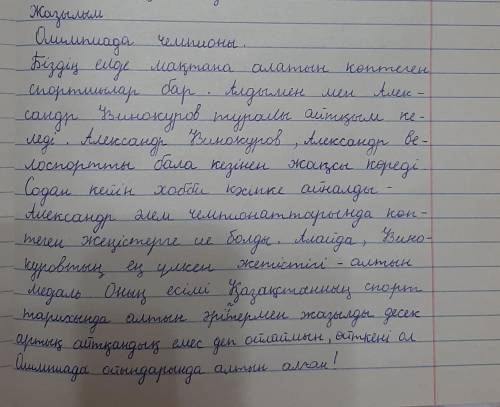 Жазылым
Олимпиада чемпионы.
Біздің елде мақтана алатын көптеген
спортшылар бар. Алдымен мен Алек-
сандр Винокуров туралы айтқым ке-
леді. Александр Винокуров, Александр ве-
лоспортты бала кезінен жақсы көреді
Содан кейін хобби кәсіпке айналды -
Александр әлем чемпионаттарында көп-
теген жеңістерге ие болды. Алайда, Вино-
куровтың ең үлкен жетістігі - алтын
медаль Оның есімі Қазақстанның спорт
тарихында алтын әріптермен жазылды десек
артық айтқандық емес деп ойлаймын, өйткені ол
Олимпиада ойындарында алтын алған!